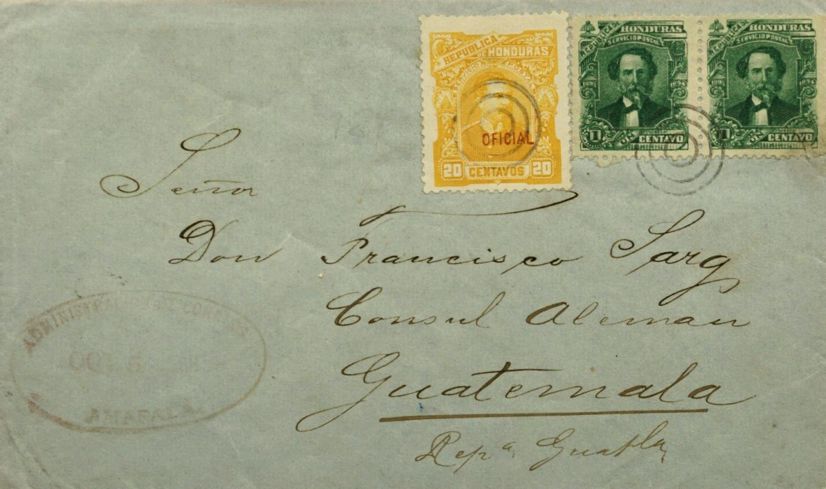 REPUBLICA
DE HONDURAS
OFICIAL
20 CENTAVOS 20
REPUBLICA HONDURAS
SERVICIO POSTAL
1 CENTAVO
REPUBLICA HONDURAS
SERVICIO POSTAL
1 CENTAVO
Señor
Don Francisco Sarg
Consul Aleman
Guatemala
Repª Guatla
ADMINISTRACION DE CORREOS
AMAPALA